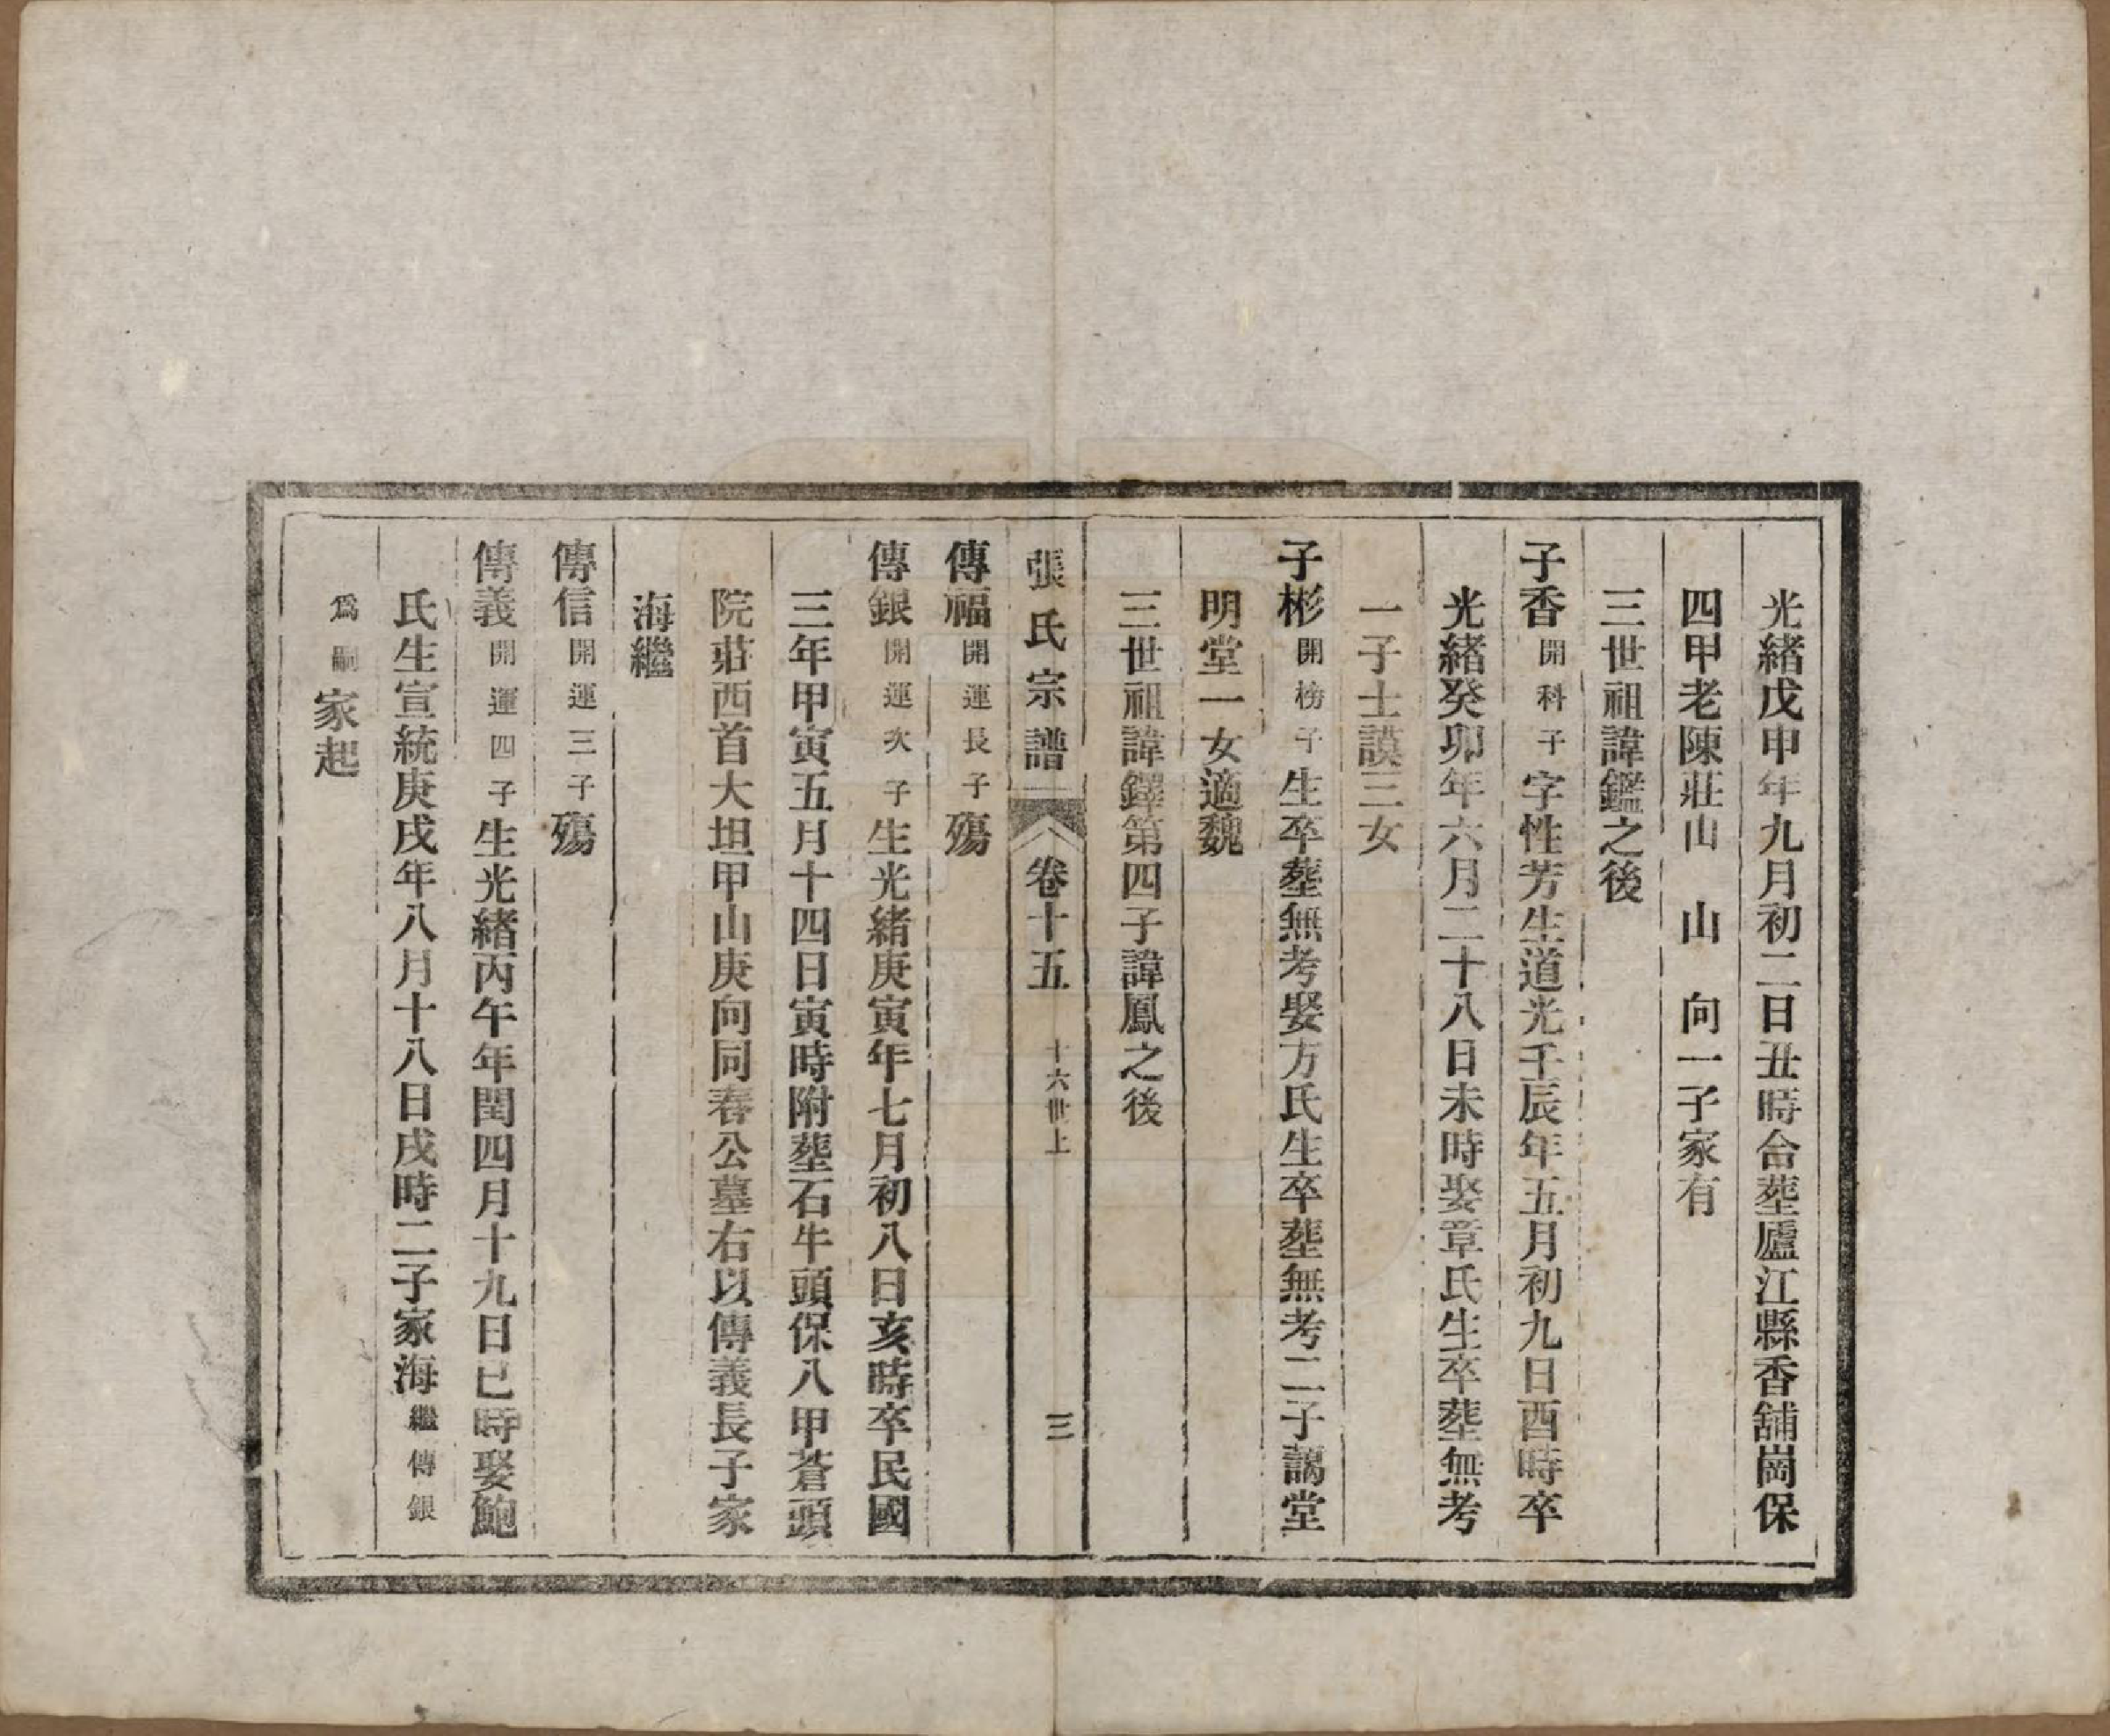 光緒戊申年九月初二日丑時合塟廬江縣香舖崗保
四甲老陳莊山　山　向一子家有
三世祖諱鑑之後
子香開科子字性芳生道光壬辰年五月初九日酉時卒
光緒癸卯年六月二十八日未時娶章氏生卒塟無考
一子士謨三女
子彬開榜子生卒塟無考娶方氏生卒塟無考二子謁堂
明堂一女適魏
三世祖諱鐸第四子諱鳳之後
張氏宗譜　卷十五　十六世上　三
傳福開運長子殤
傳銀開運次子生光緒庚寅年七月初八日亥時卒民國
三年甲寅五月十四日寅時附塟石牛頭保八甲蒼頭
院莊西首大坦甲山庚向同春公墓右以傳義長子家
海繼
傳信開運三子殤
傳義開運四子生光緒丙午年閏四月十九日巳時娶鮑
氏生宣統庚戌年八月十八日戌時二子家海繼傳銀
爲嗣家起